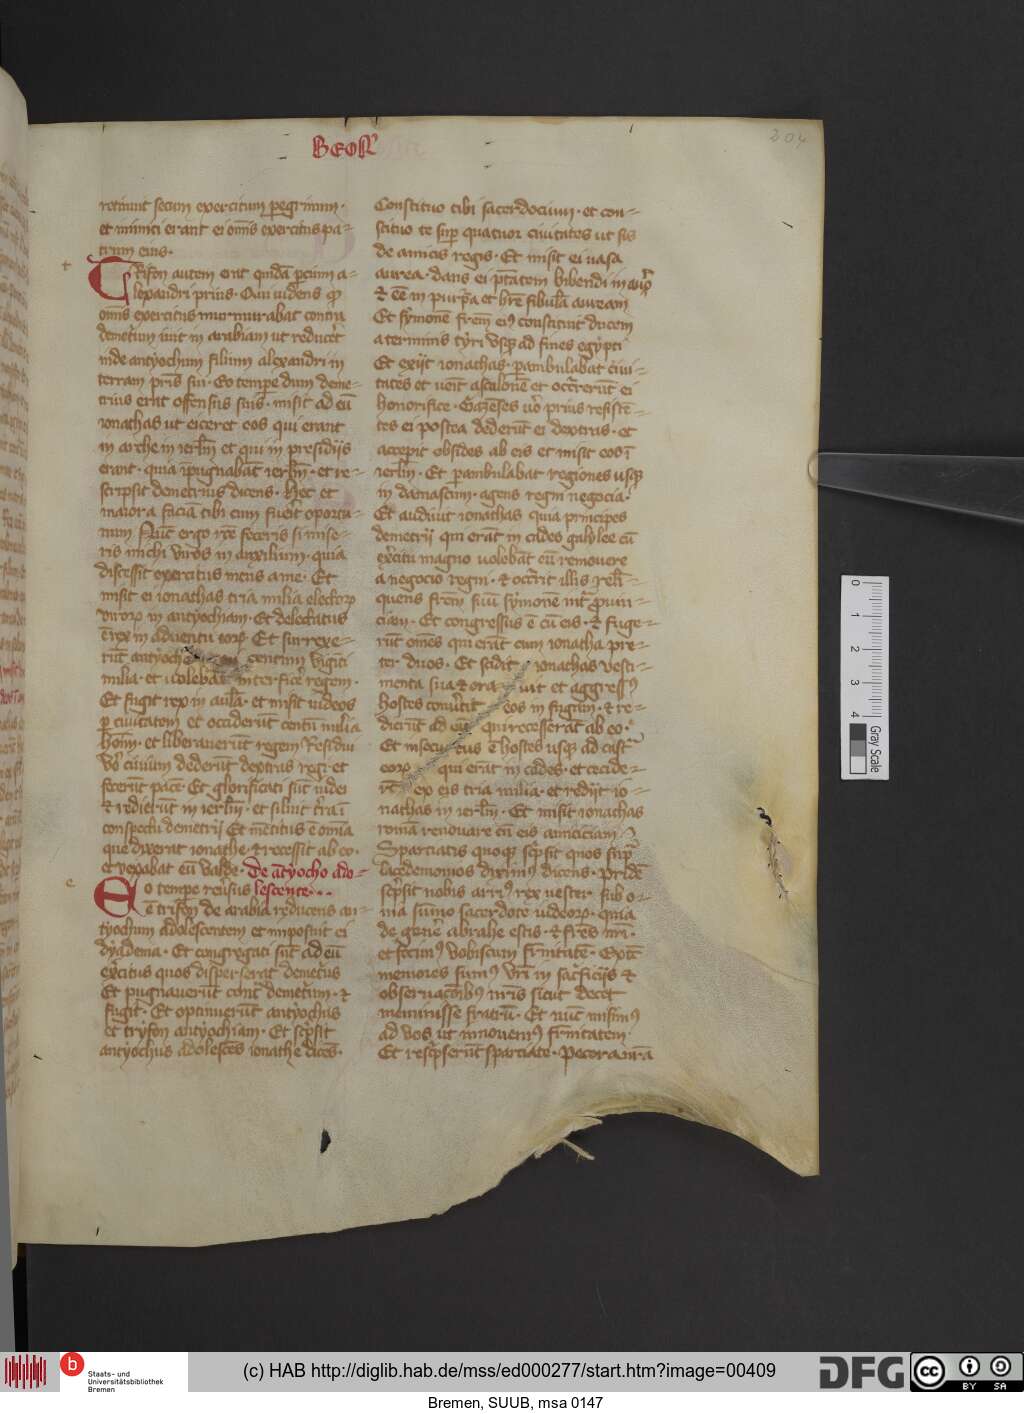 204
retinuit secum exercitum peregrinum ·
et inimici erant ei om̄s exercitus pa-
trum eius ·
t
Trifon autem erat quidā pcium a-
lexandri prius · Qui uidens qͦ
om̄s exercitus murmurabat contra
demetriū iuit in arabiam ut reduceret
inde antyochum filium alexandri in
terram pr̄is sui · Eo tempe dum deme-
trius erat offensus suis · misit ad eū
ionathas ut eiceret eos qui erant
in arche in ierlm̄ et qui in presidiis
erant · quia īpugnabāt ierlm̄ · et re-
scripsit demetrius dicens · Hec et
maiora faciā tibi cum fueīt oportu-
num Nūc ergo rc̄e feceris si mise-
ris michi viros in auxilium · quia
discessit exercitus meus a me · Et
misit ei ionathas tria milia electorꝝ
virorꝝ in antyochiam · Et delectatus
ē rex in aduentu eorꝝ · Et surrexe-
rūt antyoch centum viginti
milia · et uolebāt interficere regem ·
Et fugit rex in aulā · et misit iudeos
per ciuitatem et occiderūt centū milia
hom̄ · et liberauerūt regem Residui
vͦ ciuium dederūt dextras regi et
fecerūt pacē · Et glorificati sūt iudei
⁊ redierūt in ierlm̄ · et siluit t̄ra ī
conspectu demetrij Et mētitus ē omīa
que dixerat ionathe · ⁊ recessit ab eo ·
et vexabat eū valde · De ātyocho ado-
e
Eo tempe reūsus lescente · ·
ē trifon de arabia reducens an-
tyochum adolescentem et imposuit ei
dyadema · Et congregati sūt ad eū
exercitus quos disperserat demetrius
Et pugnauerūt contra demetrium · ⁊
fugit · Et optinuerūt antyochus
et tryfon antyochiam · Et scripsit
antyochus adolescēs ionathe dicēs ·
Constituo tibi sacerdocium · et con-
stituo te supꝑ quatuor ciuitates ut sis
de amicis regis · Et misit ei uasa
aurea · dans ei ptātem bibendi in auro
⁊ ēē in purpra et hr̄e fibulā auream
Et symonē frēm eiꝰ constituit ducem
a terminis tyri vsqꝫ ad fines egypti
Et exiit ionathas · pambulabat ciui-
tates et ueīt ascalonē et occrerūt ei
honorifice · Gazēses uͦ prius resistē-
tes ei postea dederūt ei dextras · et
accepit obsides ab eis et misit eos ī
ierlm̄ · Et pambulabat regiones usqꝫ
in damascum · agens regni negocia ·
Et audiuit ionathas quia principes
demetrij qui erāt in cades galylee cū
exercitu magno uolebāt eū remouere
a negocio regni · ⁊ occrrit illis reli-
quens frēm suū symonē infra pui-
ciam · Et congressus ē cū eis · ⁊ fuge-
rūt om̄es qui erāt cum ionatha pre-
ter duos · Et scidit ionathas vesti-
menta sua ⁊ ora uit et aggressꝰ
hostes conutit eos in fugam · ⁊ re-
dierūt ad eū qui recesserāt ab eo ·
Et insecutus ē hostes usqꝫ ad castra
eorꝝ qui erāt in cades · et cecide-
rūt ex eis tria milia · et rediit io-
nathas in ierlm̄ · Et misit ionathas
romā renouare cū eis amiciciam ·
Sparciatis quoqꝫ scripsit quos supra
lacedemonios diximꝰ dicens · Pridē
scripsit nobis arriꝰ rex uester · sub o-
nia sūmo sacerdote iudeorꝝ · quia
de genere abrahe estis · ⁊ frēs nr̄i ·
et fecimꝰ vobiscum fr̄nitatē ·
memores sumꝰ vr̄i in sacrificiis ⁊
obseruaciōibꝰ nr̄is sicut decet
meminisse fratrū · Et nūc misimꝰ
ad vos ut innouemꝰ fr̄nitatem ·
Et rescripserūt sparciate · Pecora nr̄a
0
1
2
3
4
Gray Scale
b
Staats- und
Universitätsbibliothek
Bremen
(c) HAB http://diglib.hab.de/mss/ed000277/start.htm?image=00409
DFG
cc
BY SA
Bremen, SUUB, msa 0147